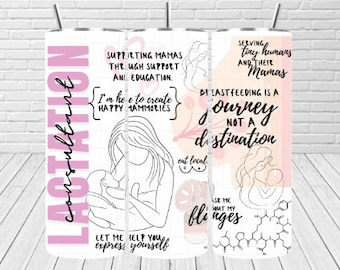 LACTATION
consultant
SUPPORTING MAMAS
THROUGH SUPPORT
AND EDUCATION.
{I'm here to create
HAPPY MAMMORIES}
LET ME HELP YOU
express yourself
eat local
SERVING
tiny humans
AND THEIR
Mamas
BREASTFEEDING IS A
journey
NOT A
destination
ASK ME
ABOUT MY
flanges